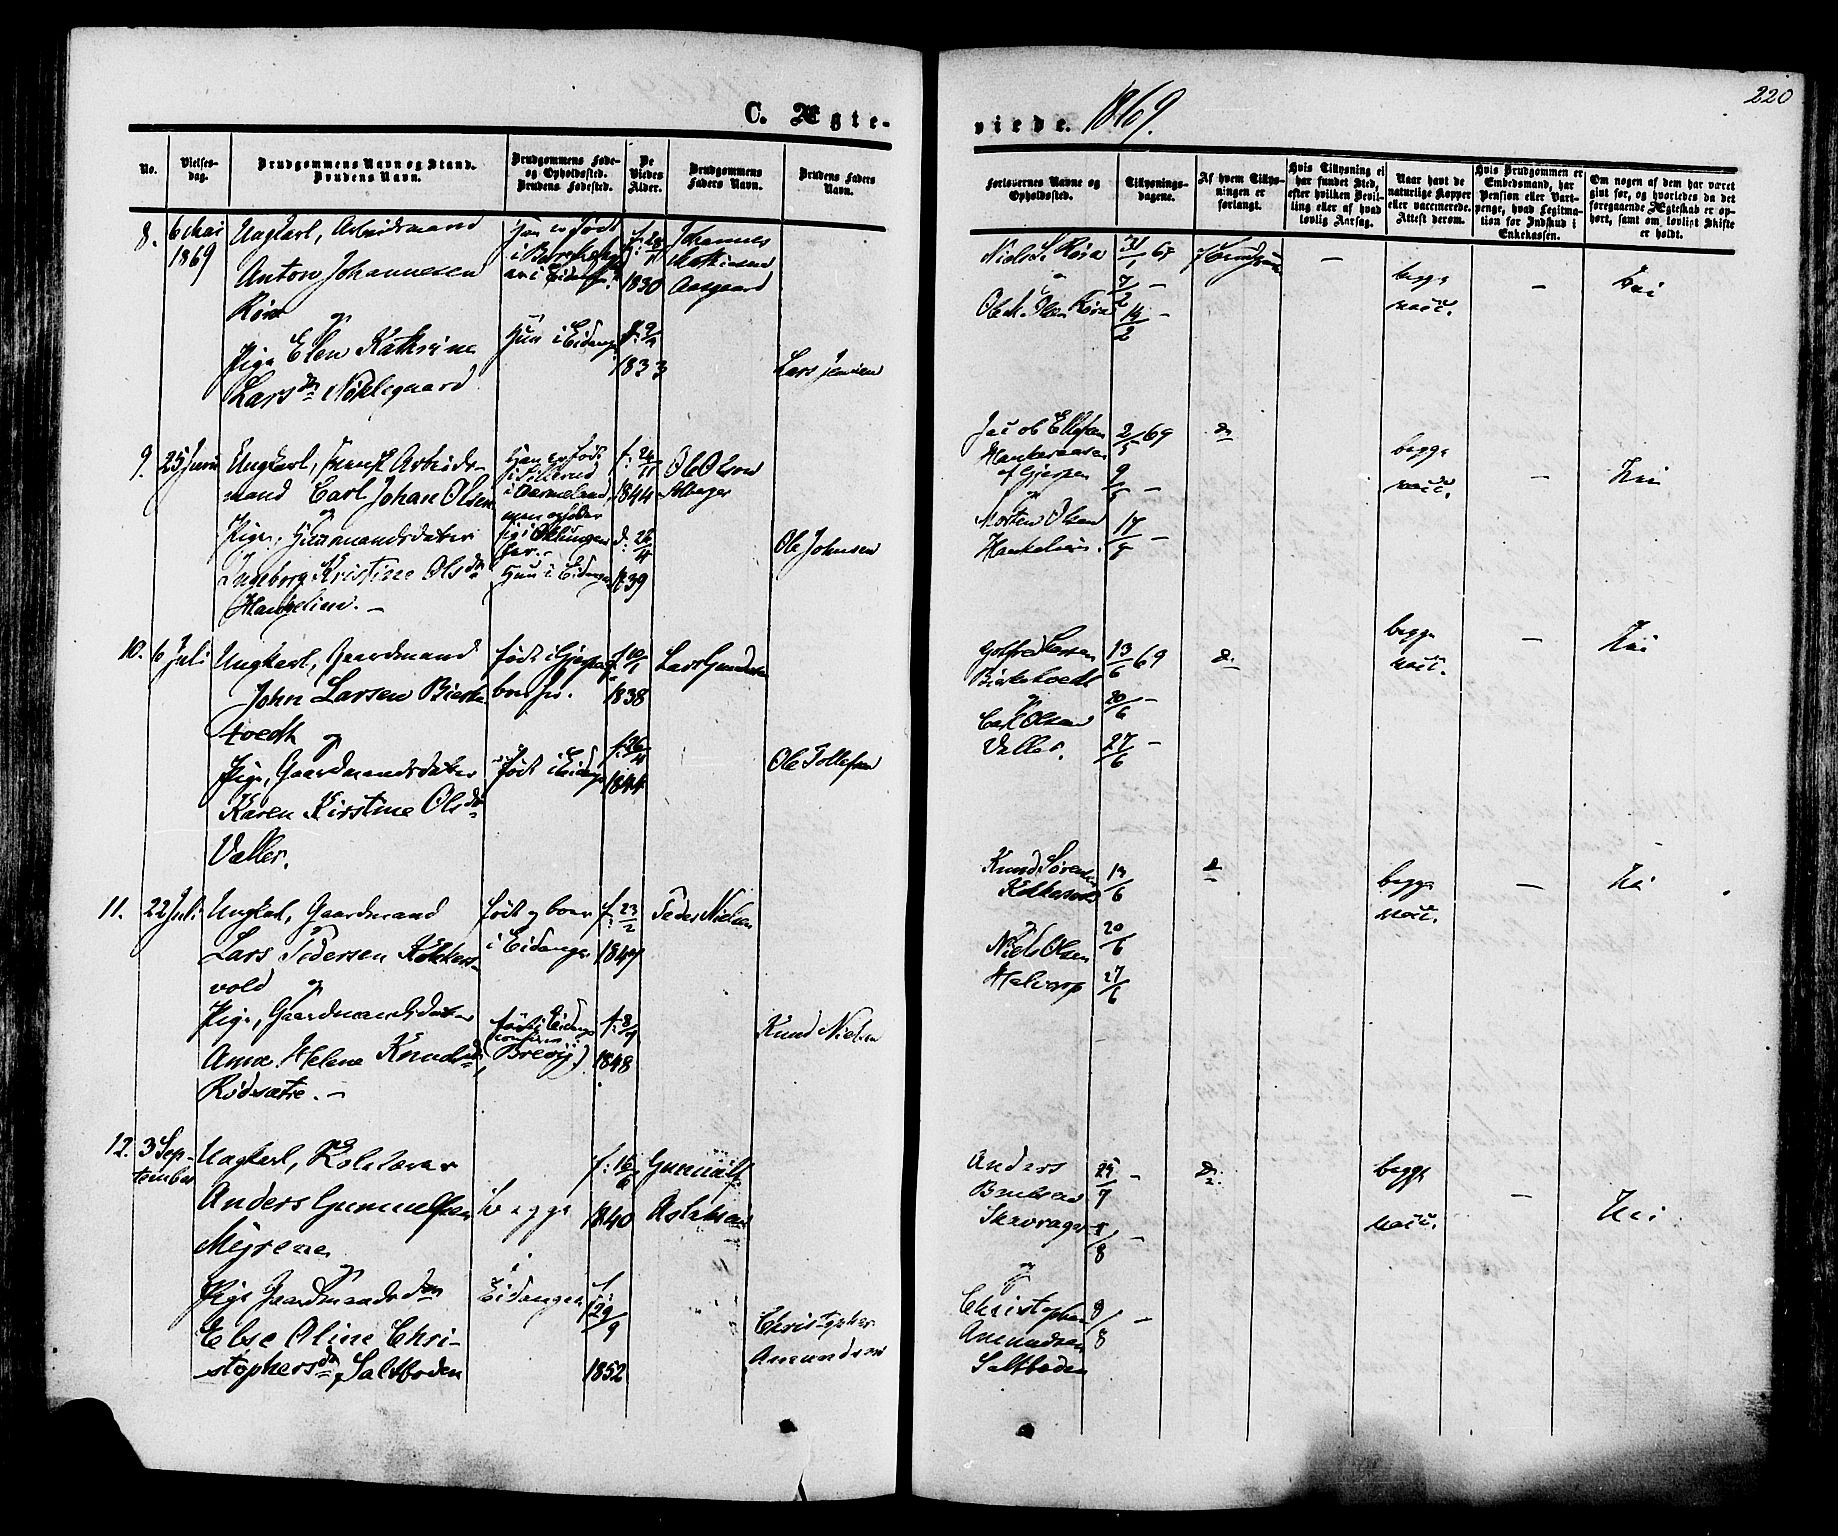 220
C. Ægte-
viede. 1869.
No.
Vielses-
dag.
Brudgommens Navn og Stand.
Brudens Navn.
Brudgommens Føde-
og Opholdssted.
Brudens Fødested.
De
Viedes
Alder.
Brudgommens
Faders Navn.
Brudens Faders
Navn.
Forlovernes Navne og
Opholdssted.
Tillysnings-
dagene.
Af hvem Tillys-
ningen er
forlangt.
Hvis Tillysning ei
har fundet Sted,
efter hvilken Bevil-
ling eller af hvad
lovlig Aarsag.
Naar havt de
naturlige Kopper
eller vaccinerede.
Attest derom.
Hvis Brudgommen er
Embedsmand, har
Pension eller Vart-
penge, hvad Legitima-
tion for Indskud i
Enkekassen.
Om nogen af dem har været
gift før, og hvorledes da det
foregaaende Ægteskab er op-
hørt, samt om lovligt Skifte
er holdt.
8. 6 Mai
1869
Ungkarl, Arbeidsmand
Anton Johannesen
Røra
og
Pige Elen Kathrine
Lars dr Nøklegaard
Han er født
Hun i Eidanger
1830
1833
Johannes
Mathisen
Aasgaard
Lars Jensen
Niels Røra 31/1 67
og 7/2 –
Ole Olsen Røra 14/2 –
–
begge
vacc.
–
Nei
9. 25 Juni
Ungkarl, svensk Arbeids-
mand Carl Johan Olsen
og
Pige, Huusmandsdatter
Ingeborg Kristine Olsdr
Hankelien. –
Han er født
i Sillerud
i Værmeland,
Hun i Eidanger
f: 24/11
1844
1839
Ole Olsen
Solberger
Ole Johnsen
Jacob Ellefsen 2/5 69
af Gjerpen 9/5 –
og
Morten Olsen 17/5 –
do
begge
vacc.
–
Nei
10. 6 Juli
Ungkarl, Gaardmand
John Larsen Bierke-
tvedt og
Pige, Gaardmandsdatter
Karen Kirstine Olsdr
Valler.
født i Gjerpen
født i Eidanger
f: 10/1
1838
1844
Lars Gundersen
Ole Tollefsen
Larsen 13/6 69
Bierketvedt
og 20/6
Carl Olsen
Valler. 27/6 –
do
begge
vacc.
–
Nei
11. 22 Juli
Ungkarl, Gaardmand
Lars Pedersen Kokkers-
vold og
Pige, Gaardmandsdatter
Anne Helene Knudsdr
Rødsætre. –
født og boer
i Eidanger
født i Eidanger
Brevig)
f: 23/2
1847
1848
Peder Nielsen
Knud Nielsen
Knud Sørensen 13/6
Kokkersvold
og 20/6
Niels Olsen
Halvarp 27/6
do
begge
vacc.
–
Nei
12. 3 Sep-
tember
Ungkarl,
Anders Gunnulfsen
Myrene
og
Pige Gaardmandsdtr
Else Oline Chri-
stophersdr, Saltboden
begge
i
Eidanger
f: 16/6
1840
f:
29/9
1852
Gunnulf
Aslaksen
Christopher
Amundsen
Anders 25/7 –
Skavrager 1/8 –
og
Christopher 8/8 –
Amundsen
Saltboden
do
begge
vacc.
–
Nei